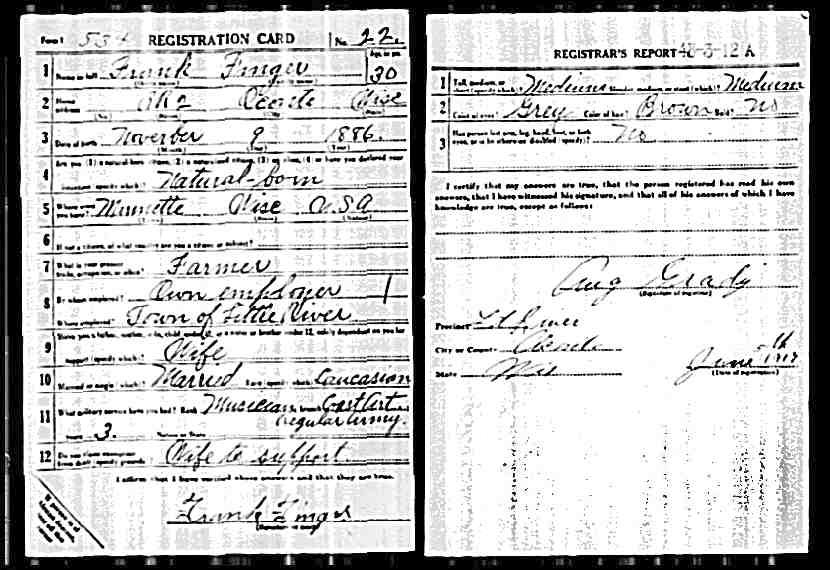 Form 1 534 REGISTRATION CARD No. 22.
Age, in yrs.
1 Name in full Frank Finger 30
2 Home address RR 2 Oconto Wisc
(No.) (City) (State)
3 Date of birth November 9 1886.
(Month) (Day) (Year)
4 Are you (1) a natural-born citizen, (2) a naturalized citizen, (3) an alien, (4) or have you declared your
intention (specify which)? Natural-born
5 Where were you born? Marinette Wisc USA
6 If not a citizen, of what country are you a citizen or subject?
7 What is your present trade, occupation, or office? Farmer
8 By whom employed? Own employer 1
Where employed? Town of Little River
9 Have you a father, mother, wife, child under 12, or a sister or brother under 12, solely dependent on you for
support (specify which)? Wife
10 Married or single (which)? Married Race (specify which)? Caucasion
11 What military service have you had? Rank Musician branch Cost Art
regular army.
years 3. Nation or State
12 Do you claim exemption from draft (specify grounds)? Wife to support
I affirm that I have verified above answers and that they are true.
Frank Finger
(Signature or mark)
REGISTRAR'S REPORT 48-3-12 A
1 Tall, medium, or short (specify which)? Medium Slender, medium, or stout (which)? Medium
2 Color of eyes? Grey Color of hair? Brown Bald? No
3 Has person lost arm, leg, hand, foot, or both eyes, or is he otherwise disabled (specify)? No
I certify that my answers are true, that the person registered has read his own
answers, that I have witnessed his signature, and that all of his answers of which I have
knowledge are true, except as follows:
Aug Grady
(Signature of registrar)
Precinct
City or County Oconto
State Wis June 5th 1917
(Date of registration)